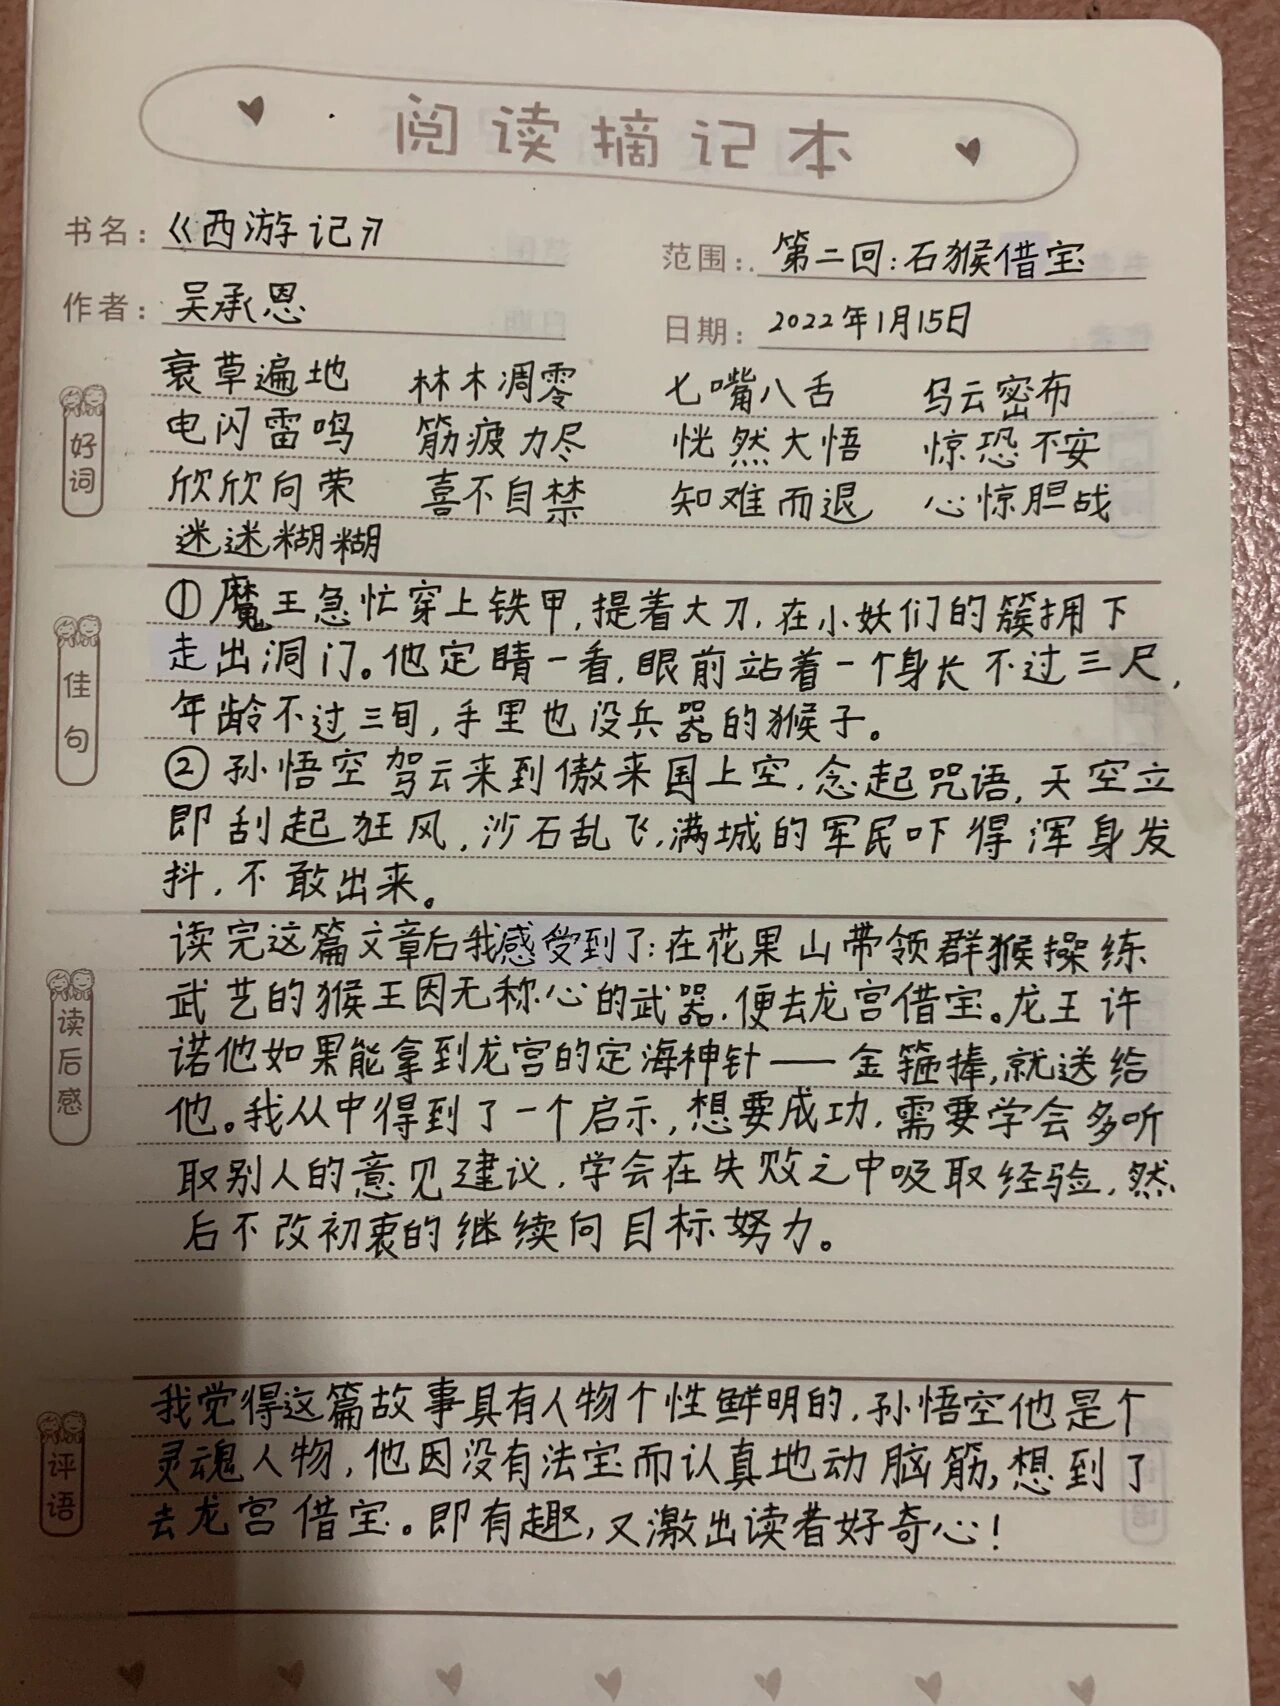 阅读摘记本
书名：《西游记》
范围：第二回：石猴借宝
作者：吴承恩
日期：2022年1月15日
好词
衰草遍地 林木凋零 七嘴八舌 乌云密布
电闪雷鸣 筋疲力尽 恍然大悟 惊恐不安
欣欣向荣 喜不自禁 知难而退 心惊胆战
迷迷糊糊
佳句
①魔王急忙穿上铁甲,提着大刀,在小妖们的簇拥下
走出洞门。他定睛一看,眼前站着一个身长不过三尺,
年龄不过三旬,手里也没兵器的猴子。
②孙悟空驾云来到傲来国上空,念起咒语,天空立
即刮起狂风,沙石乱飞,满城的军民吓得浑身发
抖,不敢出来。
读后感
读完这篇文章后我感受到了:在花果山带领群猴操练
武艺的猴王因无称心的武器,便去龙宫借宝。龙王许
诺他如果能拿到龙宫的定海神针——金箍捧,就送给
他。我从中得到了一个启示,想要成功,需要学会多听
取别人的意见建议,学会在失败之中吸取经验,然
后不改初衷的继续向目标努力。
评语
我觉得这篇故事具有人物个性鲜明的,孙悟空他是个
灵魂人物,他因没有法宝而认真地动脑筋,想到了
去龙宫借宝。即有趣,又激出读者好奇心!